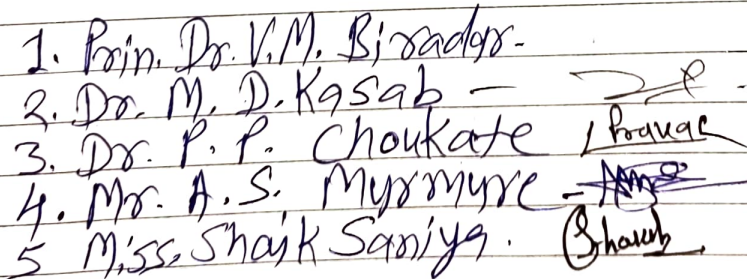 1. Prin. Dr. V.M. Biradar-
2. Dr. M. D. Kasab -
3. Dr. P. P. Choukate
4. Mr. A. S. Murmure -
5 Miss. Shaik Saniya.